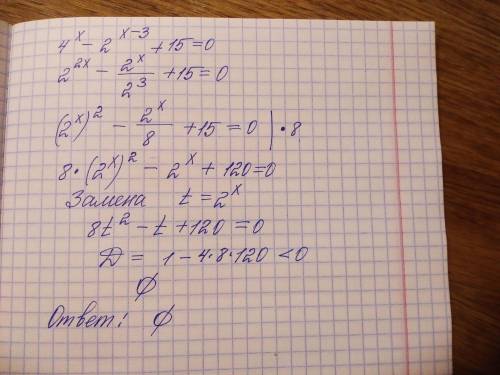 4^x - 2^{x-3} + 15 = 0
2^{2x} - \frac{2^x}{2^3} + 15 = 0
(2^x)^2 - \frac{2^x}{8} + 15 = 0 | · 8
8 · (2^x)^2 - 2^x + 120 = 0
Замена t = 2^x
8t^2 - t + 120 = 0
D = 1 - 4·8·120 < 0
∅
Ответ: ∅